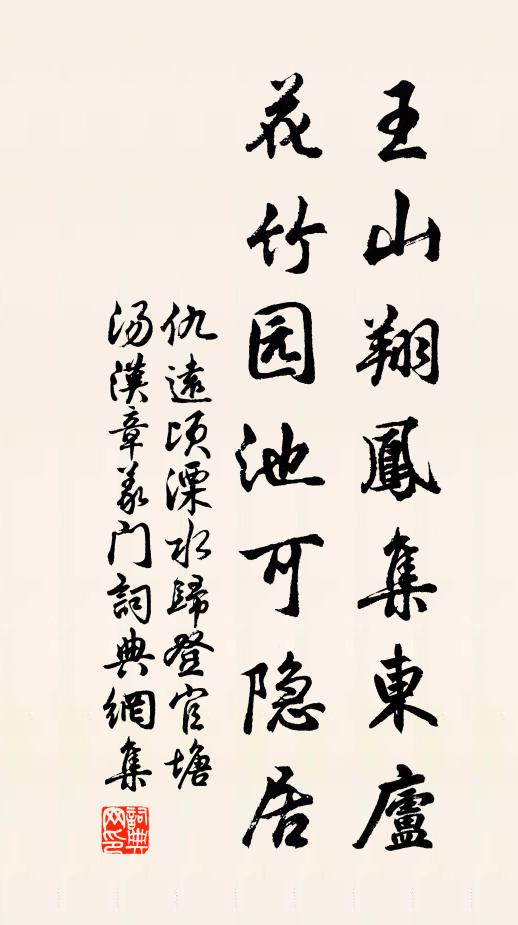 王山翔鳳集東廬
花竹园池可隐居
仇遠頃溧水歸登官塘
湯漢章義门詞典網集
詞典网印